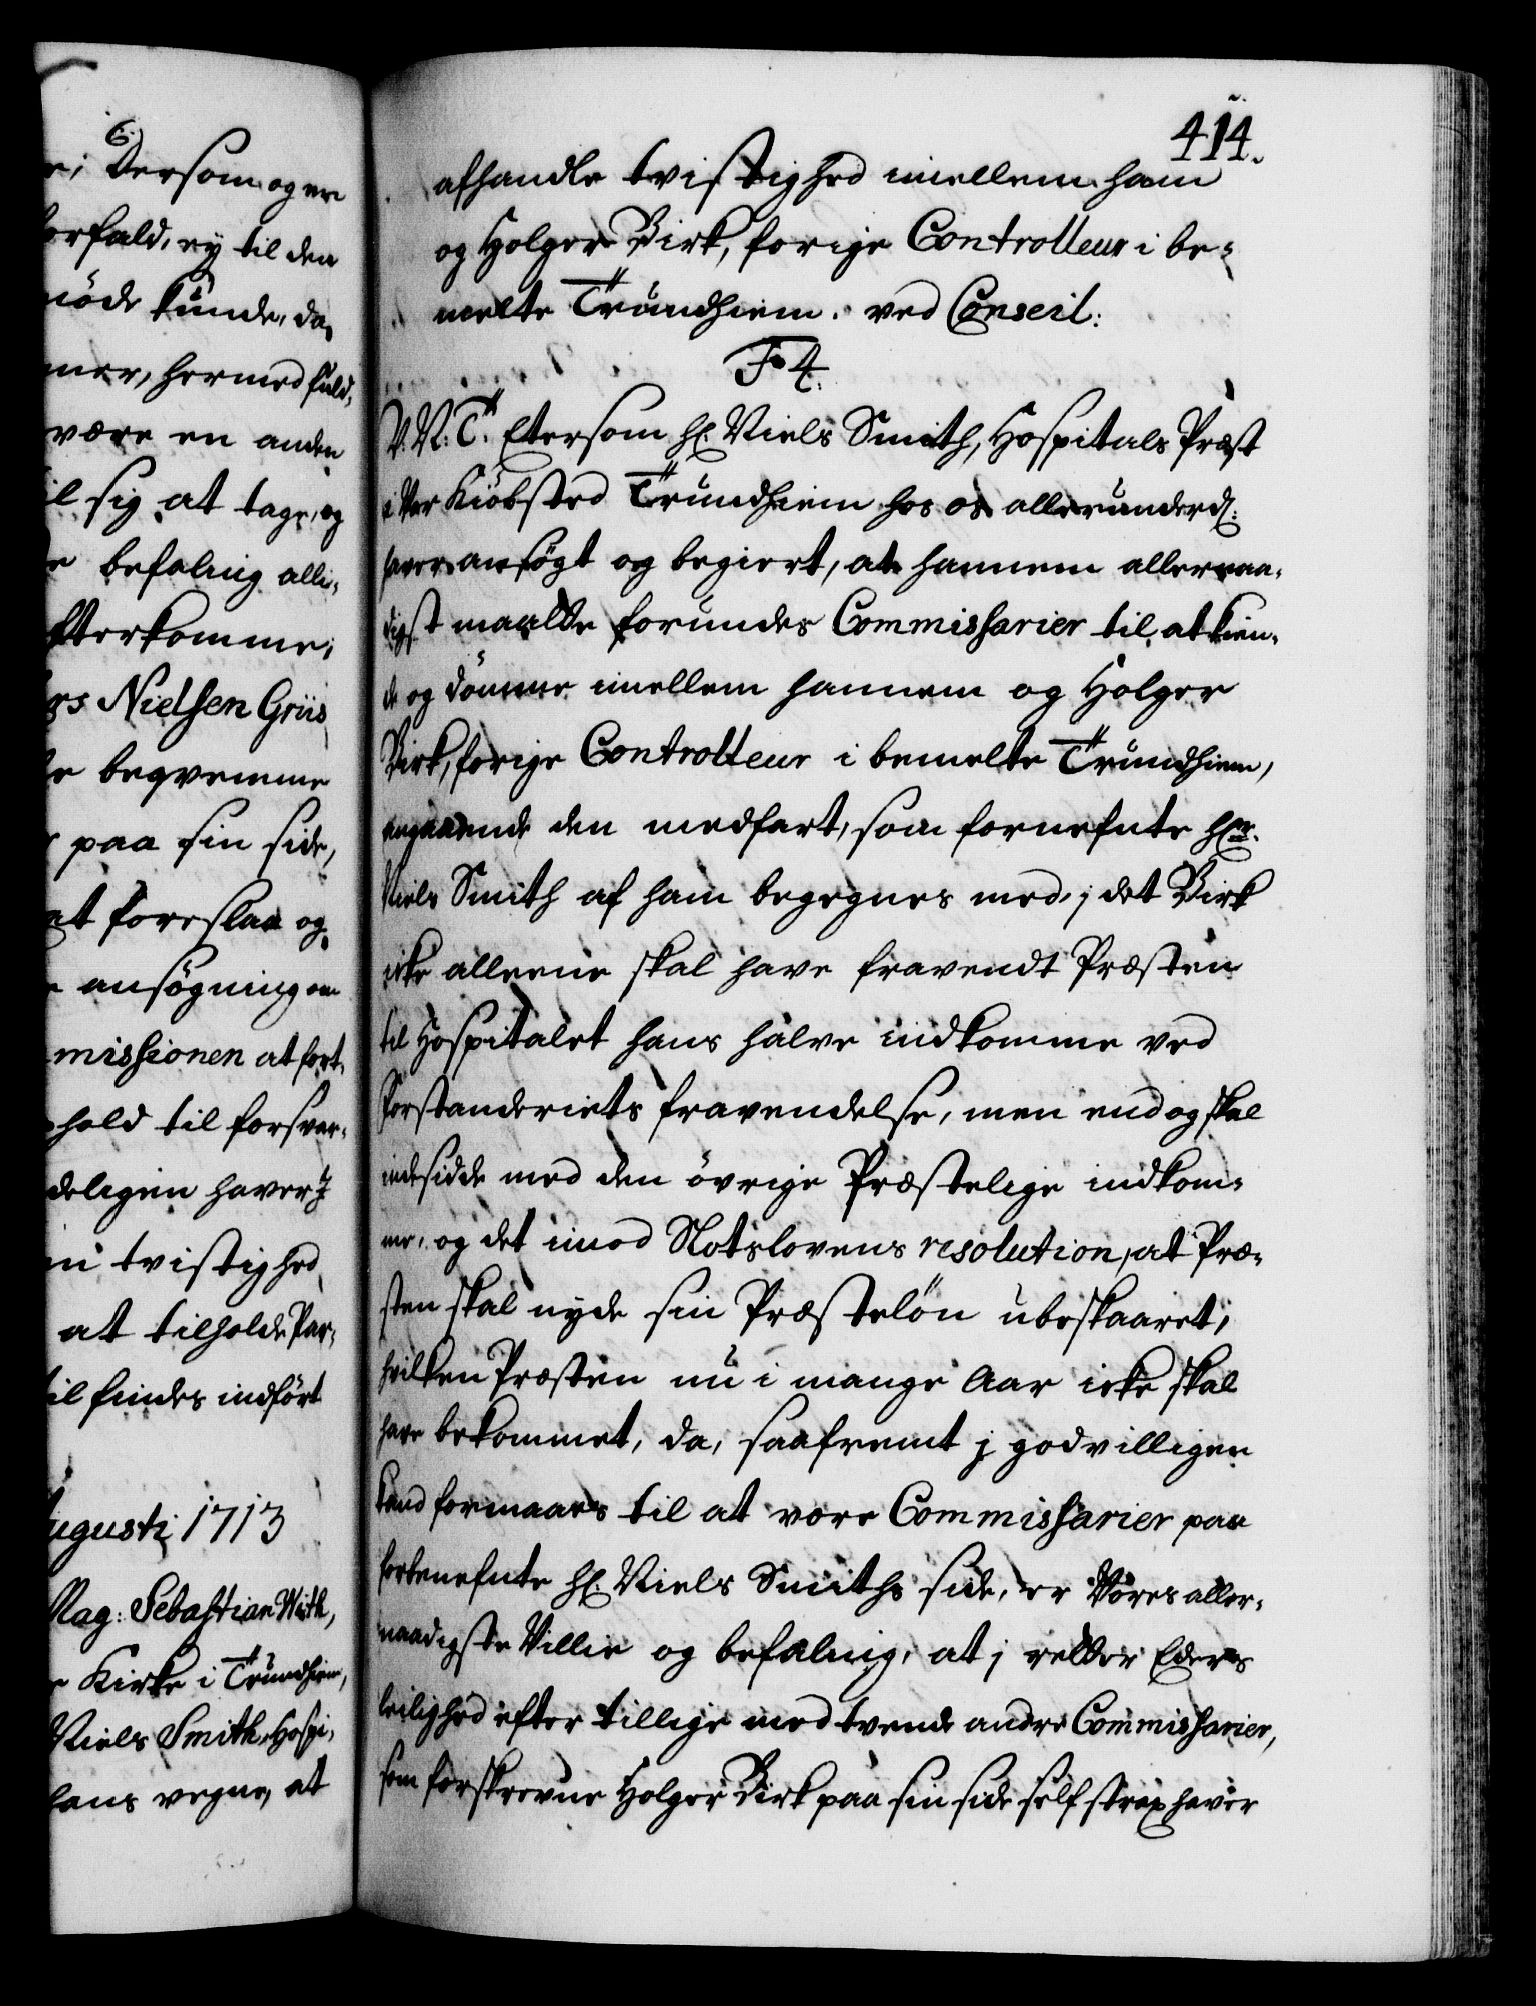 6.
Dersom og en
orfald, ey til den
möde kunde, da
mer, hermed fuld,,
være en anden
il sig at tage, og
befaling alle,,
fterkomme;
Nielsen Griis
begvemme
paa sin side,
at foreslaa og
ansøgning om
missionen at fort,,
hold til forsvar,,
deligen haver
tvistighed
at tilholde Par,,
til findes indfört
ugusti 1713
Mag: Sebastian With,
Kirke i Trundhiem,
Niels Smith, Hospi,,
hans vegne, at
414.
afhandle tvistighed imellem ham
og Holger Birk, forige Controlleur i be,,
melte Trundhiem. ved Conseil:
F 4.
V. N: T. Eftersom Hr. Niels Smith, Hospitals Præst
i Vor Kiöbsted Trundhiem hos os allerunderd:
haver ansøgt og begiert, at hannem allernaa,,
digst maatte forundes Commissarier til, at kien,,
de og dömme imellem hannem og Holger
Birk, forige Controlleur i bemelte Trundhiem,
angaaende den medfart, som fornefnte Hr.
Niels Smith af ham begegnes med, j det Birk
icke alleene skal have fravendt Præsten
til Hospitalet hans halve indkomme ved
Forstanderiets fravendelse, men end og skal
indesidde med den övrige Præstelige indkom,,
me, og det imod Slotslovens resolution, at Præ,,
sten skal nyde sin Præstelön ubeskaaret,
hvilken Præsten nu i mange Aar icke skal
have bekommet, da, saafremt j godvilligen
kand formaaes til at være Commissarier paa
forbenefnte Hr. Niels Smiths side, er Vores aller,,
naadigste Villie og befaling, at j retter Eders
leilighed efter tillige med tvende andre Commissarier,
som forskrevne Holger Birk paa sin side self strax haver